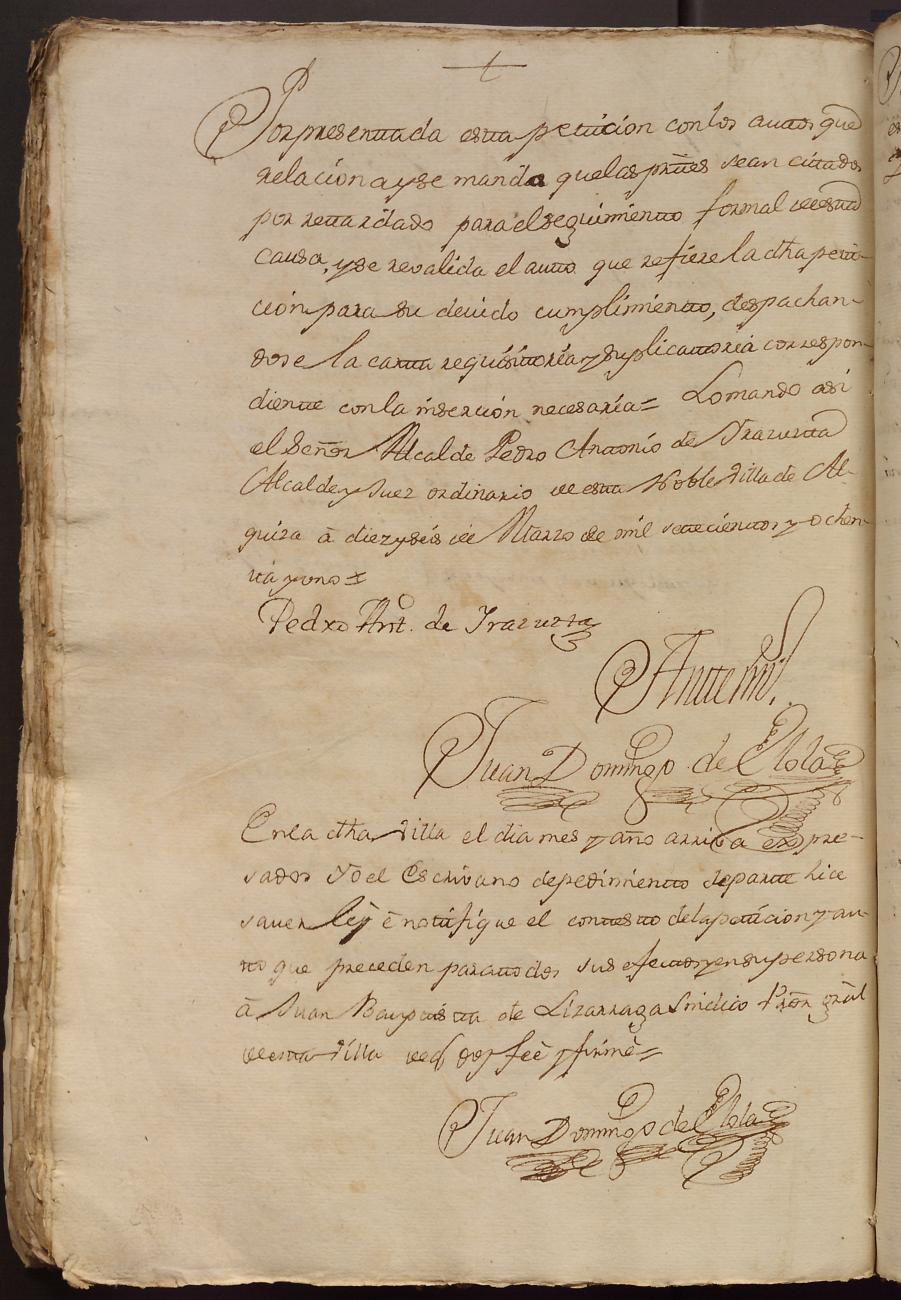 +
Por presenttada estta petticion con los auttos que
relaciona y se manda que las prttes sean cittados
por rettardado para el seguimientto formal de estta
causa, y se revalida el autto que refiere la dha peti-
cion para su devido cumplimientto, despachan-
dose la cartta requisittoria y suplicattoria correspon-
diente con la insercion necesaria = Lo mando asi
el Señor Alcalde Pedro Antonio de Irazustta
Alcalde y Juez ordinario de estta Noble Villa de Al-
quiza à diez y seis de Marzo de mil settecienttos y ochen-
tta y uno =
Pedro Antº. de Irazuzta
Antte mi
Juan Domingo de Elola
En la dha Villa el dia mes y año arriva expre-
sados Yo el Escrivano de pedimientto de partte hice
saver ley è nottifique el contestto de la petticion y au-
tto que preceden para ttodos sus efecttos y en su persona
à Juan Bauptistta de Lizarraga Sindico Prõr grãl
de estta Villa de q doy feè y firmè =
Juan Domingo de Elola